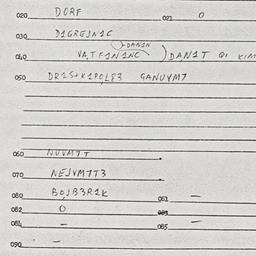 020 DORF 021 0
030 D1GREJN1C
DAN1N
040 VATF1N1NC DAN1T QI KIM
050 DR1S+K1POL83 GANUYM7
060 NUVM7T
070 NEJVM7T3
080 BOJB3R1K 081 —
082 0 083
084 — 085 —
090 —